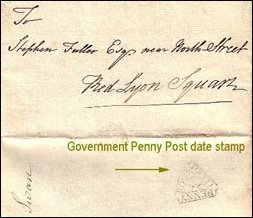 To
Stephen Fuller Esq. near North Street
Red Lyon Square
Government Penny Post date stamp
PENNY
Swan